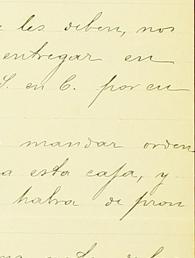 les deben, nos
entregar en
S. en C. por cu
mandar orden
a esta casa, y
habra de pron